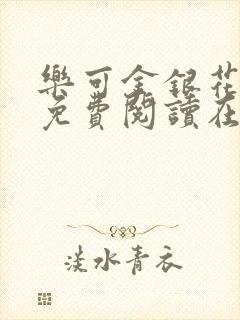 樂可金銀花
免費閱讀在
淡水青衣